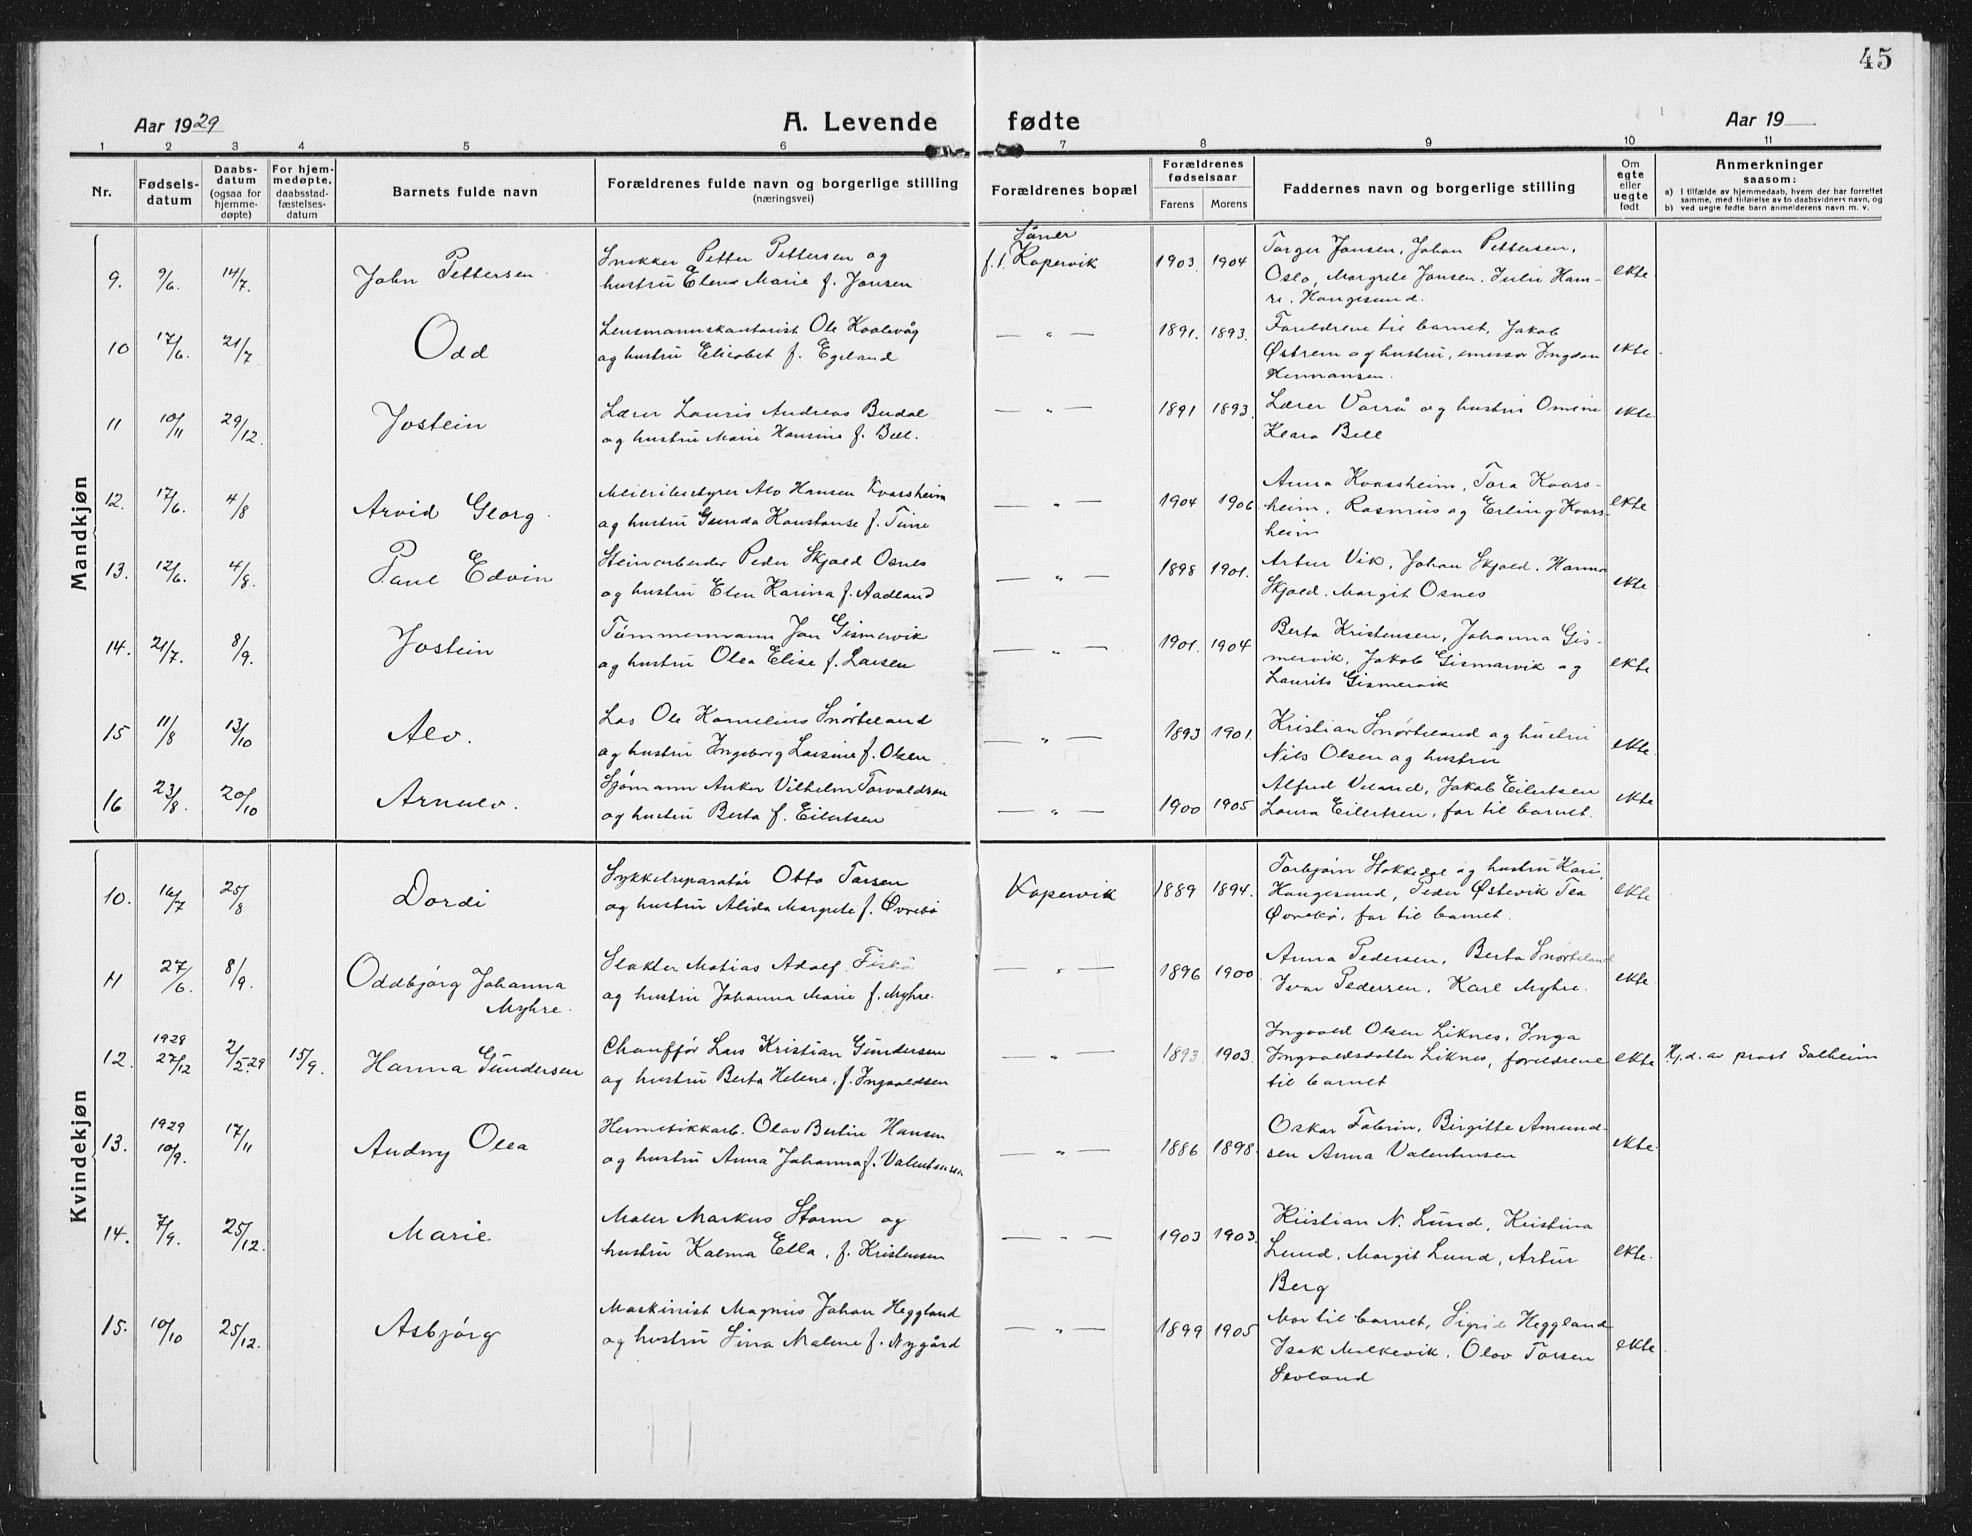 45
Aar 1929
A. Levende fødte
Aar 19
1 2 3 4 5 6 7 8 9 10 11
Nr.
Fødsels-
datum
Daabs-
datum
(ogsaa for
hjemme-
døpte)
For hjem-
medøpte,
daabsstad-
fæstelses-
datum
Barnets fulde navn
Forældrenes fulde navn og borgerlige stilling
(næringsvei)
Forældrenes bopæl
Forældrenes
fødselsaar
Farens Morens
Faddernes navn og borgerlige stilling
Om
egte
eller
uegte
født
Anmerkninger
saasom:
a) I tilfælde av hjemmedaab, hvem der har forrettet
samme, med tilføielse av to daabsvidners navn, og
b) ved uegte fødte barn anmelderens navn m. v.
Mandkjøn
9. 9/6. 14/7. John Pettersen
Snekker Petter Pettersen og
hustru Elena Marie f. Jansen
f. t. Kopervik
1903. 1904
Torger Jansen, Johan Pettersen,
Oslo, Margrete Jansen, Julie Ham-
re, Haugesund.
ekte
10 17/6. 21/7 Odd
Lensmannskontorist Ole Kaalevåg
og hustru Elisabet f. Egeland
— " —
1891. 1893.
Foreldrene til barnet, Jakob
Østrem og hustru, emissær Ingdan
Hermansen.
ekte.
11 10/11 29/12. Jostein
Lærer Lauris Andreas Budal
og hustru Marie Hansine f. Bell.
— " —
1891 1893.
Lærer Varrå og hustru Omine
Klara Bell
ekte.
12. 17/6. 4/8 Arvid Georg.
Meieribestyrer Alv Hansen Kvassheim
og hustru Gunda Konstanse f. Tune
— " —
1904 1906.
Anna Kvassheim, Tora Kvass-
heim, Rasmus og Erling Kvass-
heim
ekte
13. 12/6. 4/8. Paul Edvin
Steinarbeider Peder Skjold Osnes
og hustru Elen Karina f. Aadland
— " —
1898 1901.
Artur Vik, Johan Skjold, Hanna
Skjold, Margit Osnes
ekte
14. 21/7. 8/9. Jostein
Tømmermann Jon Gismervik
og hustru Olea Elise f. Larsen
— " —
1901. 1904
Berta Kristensen, Johanna Gis-
mervik, Jakob Gismarvik og
Laurits Gismervik
ekte
15 11/8 13/10 Alv.
Los Ole Kornelius Snørteland
og hustru Ingeborg Laisine f. Olsen
— " —
1893 1901.
Kristian Snørteland og hustru
Nils Olsen og hustru
ekte.
16 23/8. 20/10 Arnulv.
Sjømann Anker Vilhelm Torvaldsen
og hustru Berta f. Eilertsen
— " —
1900 1905
Alfred Veland, Jakob Eilertsen
Laura Eilertsen, far til barnet.
ekte
Kvindekjøn
10. 16/7 25/8 Dordi
Sykkelreparatør Otto Torsen
og hustru Alida Margrete f. Øvrebø
Kopervik
1889 1894.
Torbjørn Stokkedal og hustru Kari,
Haugesund, Peder Østevik Tea
Øvrebø, far til barnet.
ekte
11 27/6. 8/9. Oddbjørg Johanna
Myhre.
Slakter Matias Adolf Fiskå
og hustru Johanna Marie f. Myhre.
— " —
1896 1900
Anna Pedersen, Berta Snørteland
Ivar Pedersen, Karl Myhre.
ekte.
12. 1928
27/12 2/5.29 15/9. Hanna Gundersen
Chauffør Lars Kristian Gundersen
og hustru Berta Helene, f. Ingvaldsen
— " —
1893. 1903.
Ingvald Olsen Liknes, Inga
Ingvaldsdatter Liknes, foreldrene
til barnet
ekte
Hj. d. av prost Solheim
13. 1929
10/9. 17/11 Audny Olea
Hermetikkarb. Olav Bertin Hansen
og hustru Anna Johanna f. Valentinsen
— " —
1886 1898.
Oskar Fabrin, Birgitte Amund-
sen Anna Valentinsen
ekte.
14. 7/9. 25/12. Marie
Maler Markus Storm og
hustru Kalma Ella, f. Kristensen
— " —
1903 1903.
Kristian N. Lund, Kristina
Lund, Margit Lund, Artur
Berg
ekte.
15. 10/10 25/12. Asbjørg
Maskinist Magnus Johan Heggland
og hustru Sina Malene f. Nygård
— " —
1899 1905
Mor til barnet, Sigrid Heggland
Isak Mulkevik, Olav Torsen
Sevland
ekte